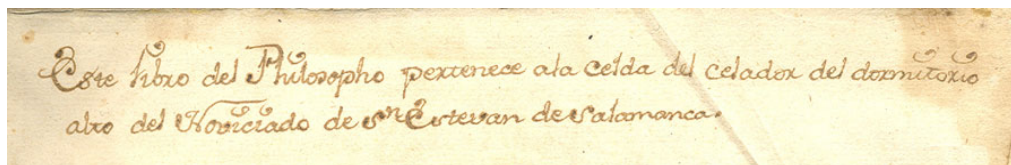 Este libro del Philosopho pertenece ala Celda del Celador del dormitorio
alto del Noviciado de Sn Estevan de Salamanca.